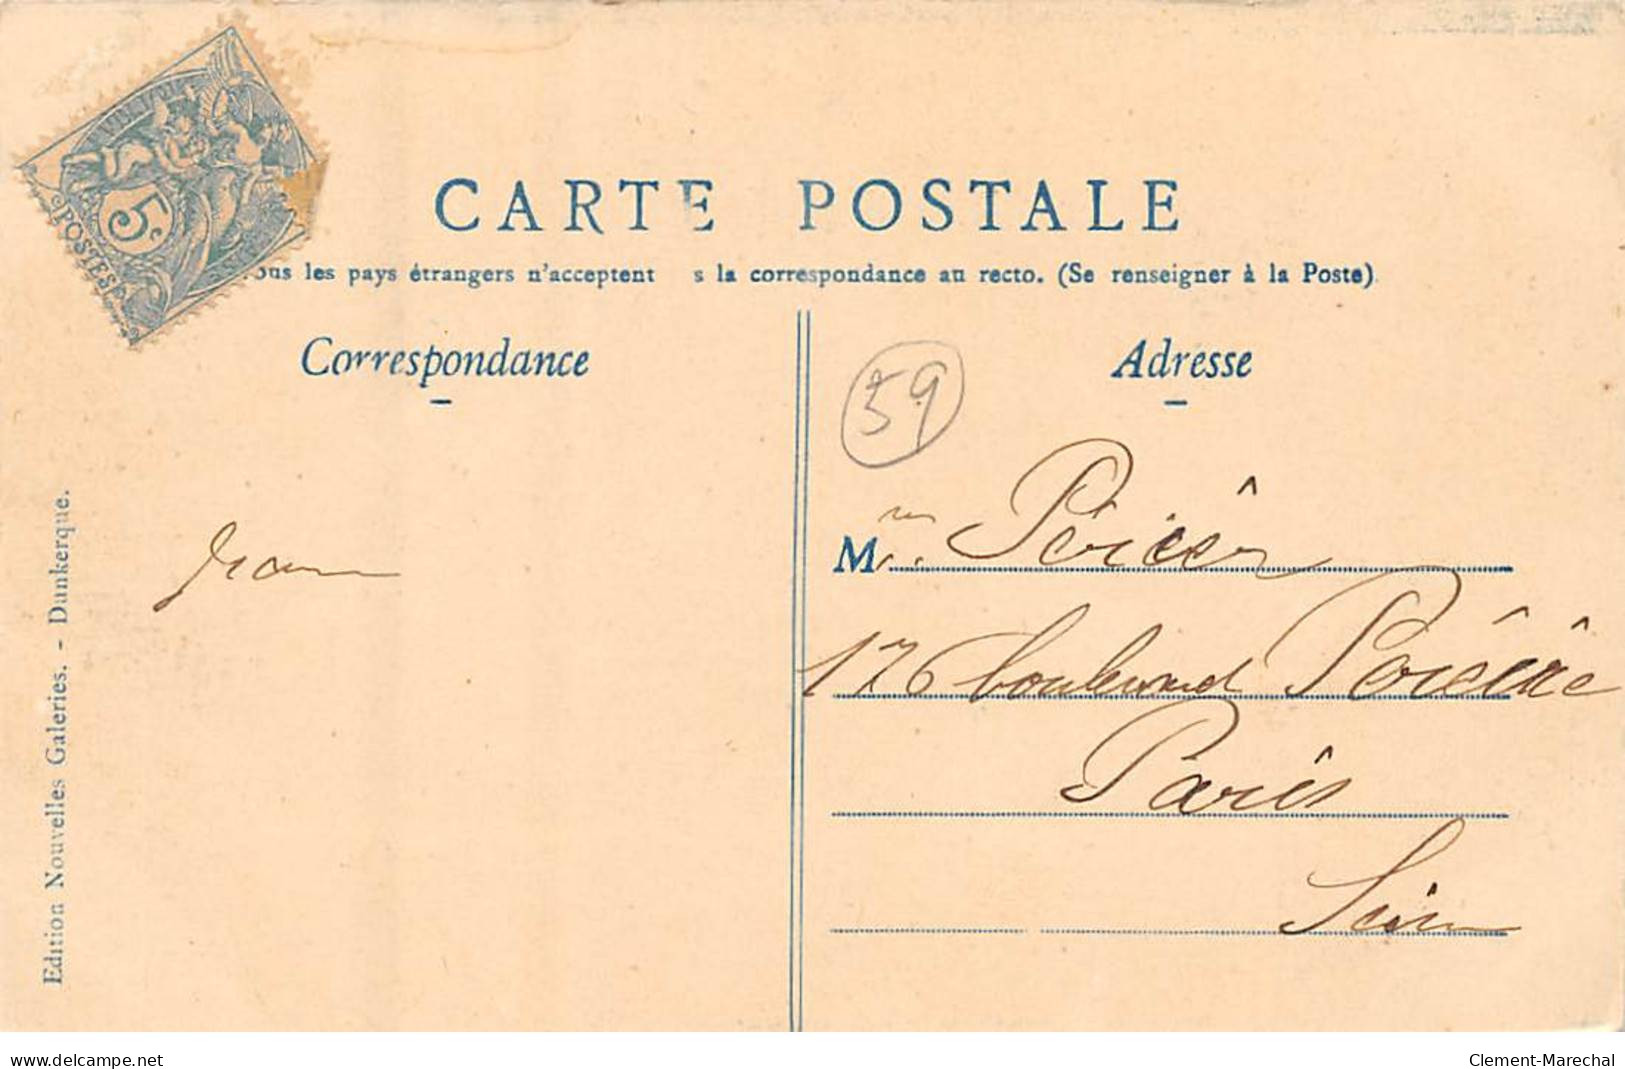 5c
POSTES
CARTE POSTALE
ous les pays étrangers n'acceptent s la correspondance au recto. (Se renseigner à la Poste)
Correspondance
Adresse
59
M
176 boulevard Péreire
Paris
Edition Nouvelles Galeries. - Dunkerque.
delcampe.net
Clement-Marechal